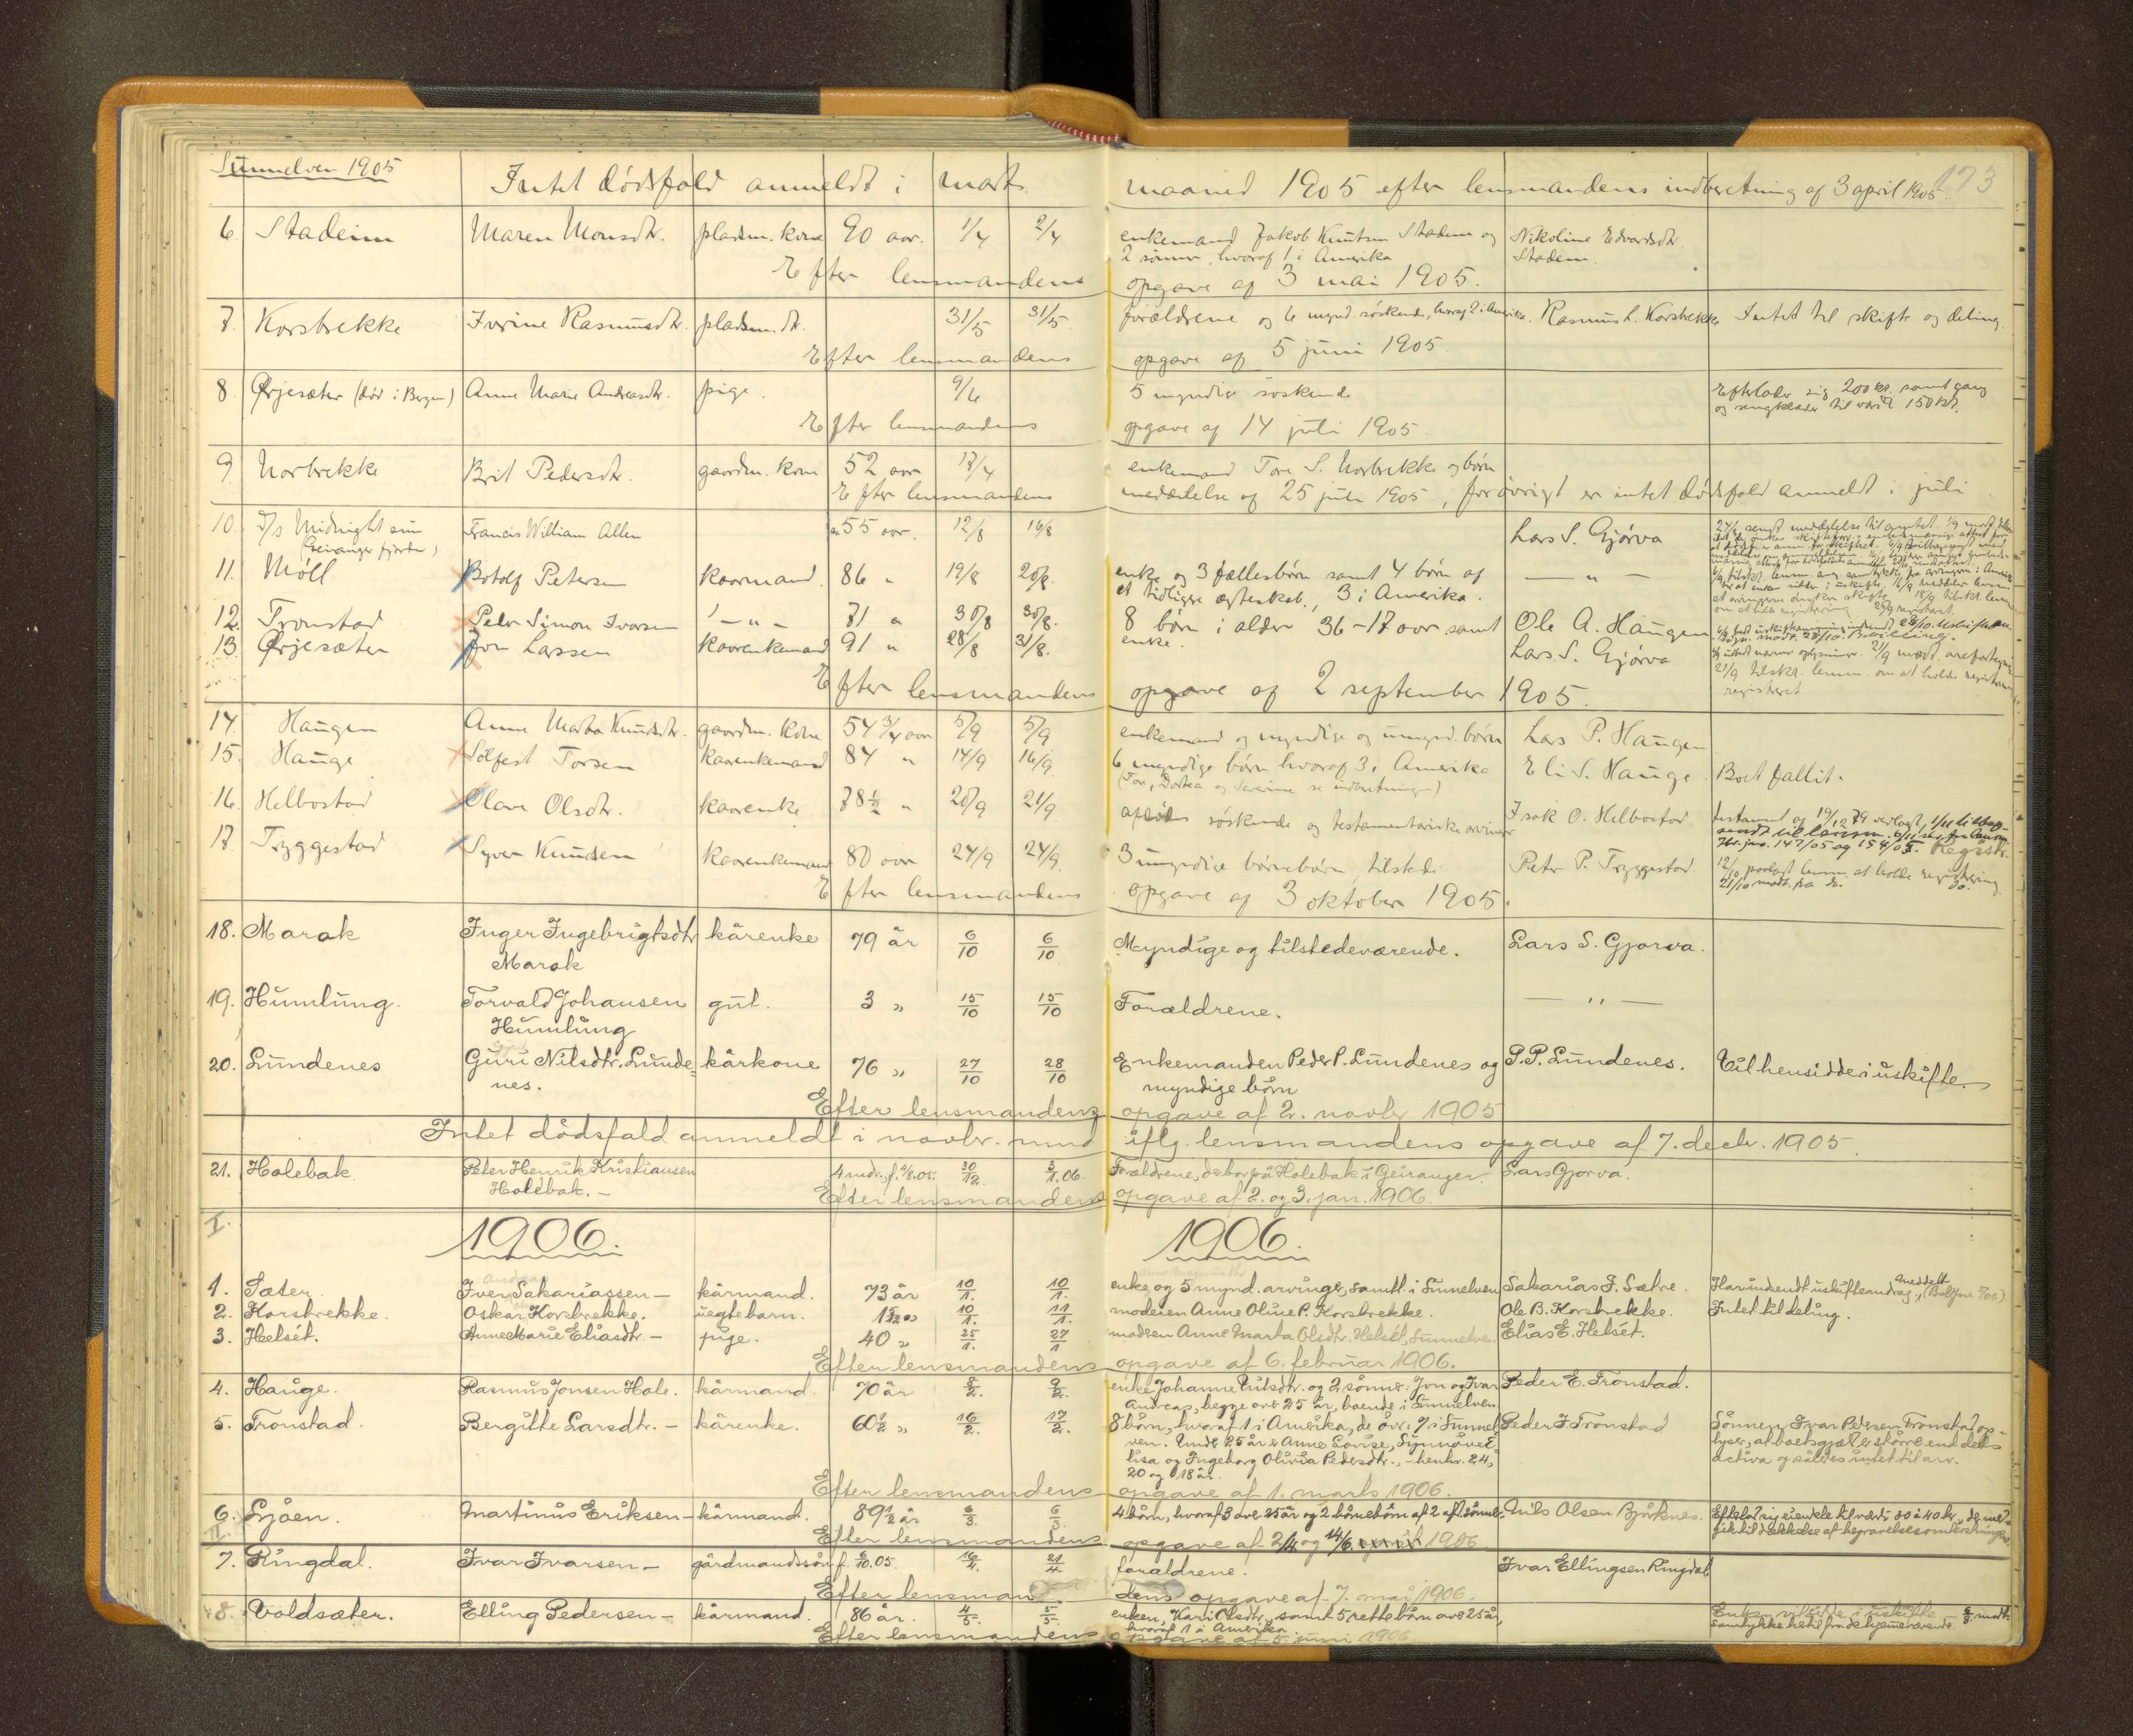 Sunnelven 1905
Intet dødsfald anmeldt i marts maaned 1905 efter lensmandens indberetning af 3 april 1905.
173
6. Stadeim Maren Monsdtr. pladsm. kone 90 aar. 1/4 2/4 enkemand Jakob Knutsen Stadem og Nikoline Edvardsdtr.
2 sønner, hvoraf 1 i Amerika Stadem.
Efter lensmandens opgave af 3 mai 1905.
7. Korsbrekke Ivrine Rasmusdtr. pladsm. dtr. 31/5 31/5 forældrene og 6 mynd. søskende, hvoraf 2 i Amerika. Rasmus L. Korsbrekke Intet til skifte og deling.
Efter lensmandens opgave af 5 juni 1905.
8 Ørjesæter (død i Bergen) Anne Marie Andreasdtr. pige. 9/6 5 myndige søskende Efterlader sig 200 kr. samt gang
og sengklæder til værdi 150 kr.
Efter lensmandens opgave af 14 juli 1905.
9. Norbrekke Brit Pedersdtr. gaardm. kone 52 aar 17/4 enkemand Tore S. Norbrekke og børn
Efter lensmandens meddelelse af 25 juli 1905, forøvrigt er intet dødsfald anmeldt i juli
10. D/s Midnight sun Francis William Allen ca 55 aar. 12/8 16/8 Lars S. Gjørva
(Geiranger fjorden)
11. Möll Botolf Petersen kaarmand. 86 " 19/8 20/8. enke og 3 fællesbørn samt 4 børn af — " —
et tidligere ægteskab, 3 i Amerika.
12. Tronstad Peder Simon Ivarsen — " — 71 " 30/8 30/8. 8 børn i alder 36-17 aar samt Ole A. Haugen
enke.
13. Ørjesæter Jon Larssen kaarenkemand 91 " 28/8 31/8. Lars S. Gjørva
21/9 tilskr. lensm. om at holde registrering
registreret
Efter lensmandens opgave af 2 september 1905.
14. Haugen Anne Marta Knudsdtr. gaardm. kone 54 3/4 aar 5/9 5/9 enkemand og myndige og umynd. børn Lars P. Haugen
15. Hauge Sølfest Torsen kaarenkemand 84 " 14/9 16/9 6 myndige børn hvoraf 3 i Amerika Eli S. Hauge Boet fallit.
(Tore, Dortea og Severine se indberetningen)
16. Helbostad Olave Olsdtr. kaarenke 78 1/2 " 20/9 21/9 afdødes søskende og testamentariske arvinger Isak O. Helbostad
17. Tryggestad Syver Knudsen kaarenkemand 80 aar 24/9 24/9. 3 umyndige børnebørn tilstede Peter P. Tryggestad 12/10 paalagt lensm. at holde registrering
21/10 modt. fra do. do.
Efter lensmandens opgave af 3 oktober 1905.
18. Marak Inger Ingebrigtsdtr kårenke 79 år 6/10 6/10 Myndige og tilstedeværende. Lars S. Gjørva.
Marak
19. Humlung. Torvald Johansen gut. 3 " 15/10 15/10 Forældrene. — " —
Humlung
20. Lundenes Guri Nilsdtr. Lunde= kårkone 76 " 27/10 28/10 Enkemanden Peder P. Lundenes og P.P. Lundenes. Vil hensidde i uskifte.
nes. myndige børn
Efter lensmandens opgave af 2. novbr. 1905
Intet dødsfald anmeldt i novbr. mnd iflg. lensmandens opgave af 7. decbr. 1905.
21. Holebak Peter Henrik Kristiansen 4 mdr. f. 4/8.05. 30/12. 3/1.06. Forældrene, der bor på Holebak i Geiranger. Lars Gjørva.
Holebak. —
Efter lensmandens opgave af 2. og 3. jan. 1906.
I.
1906. 1906.
1. Sæter. Iver Sakariassen — kårmand. 73 år 10/1. 10/1. enke og 5 mynd. arvinger, samtl. i Sunnelven Sakarias I. Sætre. Har indsendt uskifteandrag., meddelt
2. Korsbrekke. Oskar Korsbrekke. uegte barn. 10/1. 11/1. moderen Anne Oline P. Korsbrekke. Ole B. Korsbrekke. Intet til deling.
3. Helset. Anne Marie Eliasdtr. — pige. 40 " 25/1. 27/1 moderen Anne Marta Olsdtr. Helset, Sunnelven Elias E. Helset.
Efter lensmandens opgave af 6. februar 1906.
4. Hauge. Rasmus Jonsen Hole. kårmand. 70 år 8/2. 9/2. enke Johanne Nilsdtr. og 2 sønner: Jon og Ivar Peder E. Tronstad.
Andreas, begge over 25 år, boende i Sunnelven.
5. Tronstad. Bergitte Larsdtr. — kårenke. 60 1/2 " 16/2. 17/2. 8 børn, hvoraf 1 i Amerika, de øvr. 7 i Sunnel= Peder I. Tronstad Sønnen Ivar Pedersen Tronstad op=
ven. Under 25 år er Anne Lovise, Synnøve E= lyser, at boets gjæld er større end dets
lisa og Ingeborg Olivia Pedersdtr., — henhv. 24, activa og således intet til arv.
20 og 18 år.
Efter lensmandens opgave af 1. marts 1906.
6. Ljøen. Martinus Eriksen — kårmand. 89 1/2 år 6/3. 6/3. 4 børn, hvoraf 3 over 25 år og 2 børnebørn af 2 afd. sønner. Nils Olsen Bjørknes. Efterlod sig eiendele til værdi 30 à 40 kr., der med=
gik til dækkelse af begravelsesomkostninger.
II.
Efter lensmandens opgave af 2/4. og 14/6. 1906
7. Ringdal. Ivar Ivarsen — gårdmandssøn f. 6/10.05. 16/4. 21/4. forældrene. Ivar Ellingsen Ringdal
Efter lensmandens opgave af 7. mai 1906.
8. Voldsæter. Elling Pedersen — kårmand. 86 år. 4/5. 5/5. enken, Kari Olsdtr., samt 5 rette børn over 25 år, Enken vil sidde i uskifte
hvoraf 1 i Amerika samtykke hertil fra de hjemmeværende modt.
Efter lensmandens opgave af 5. juni 1906